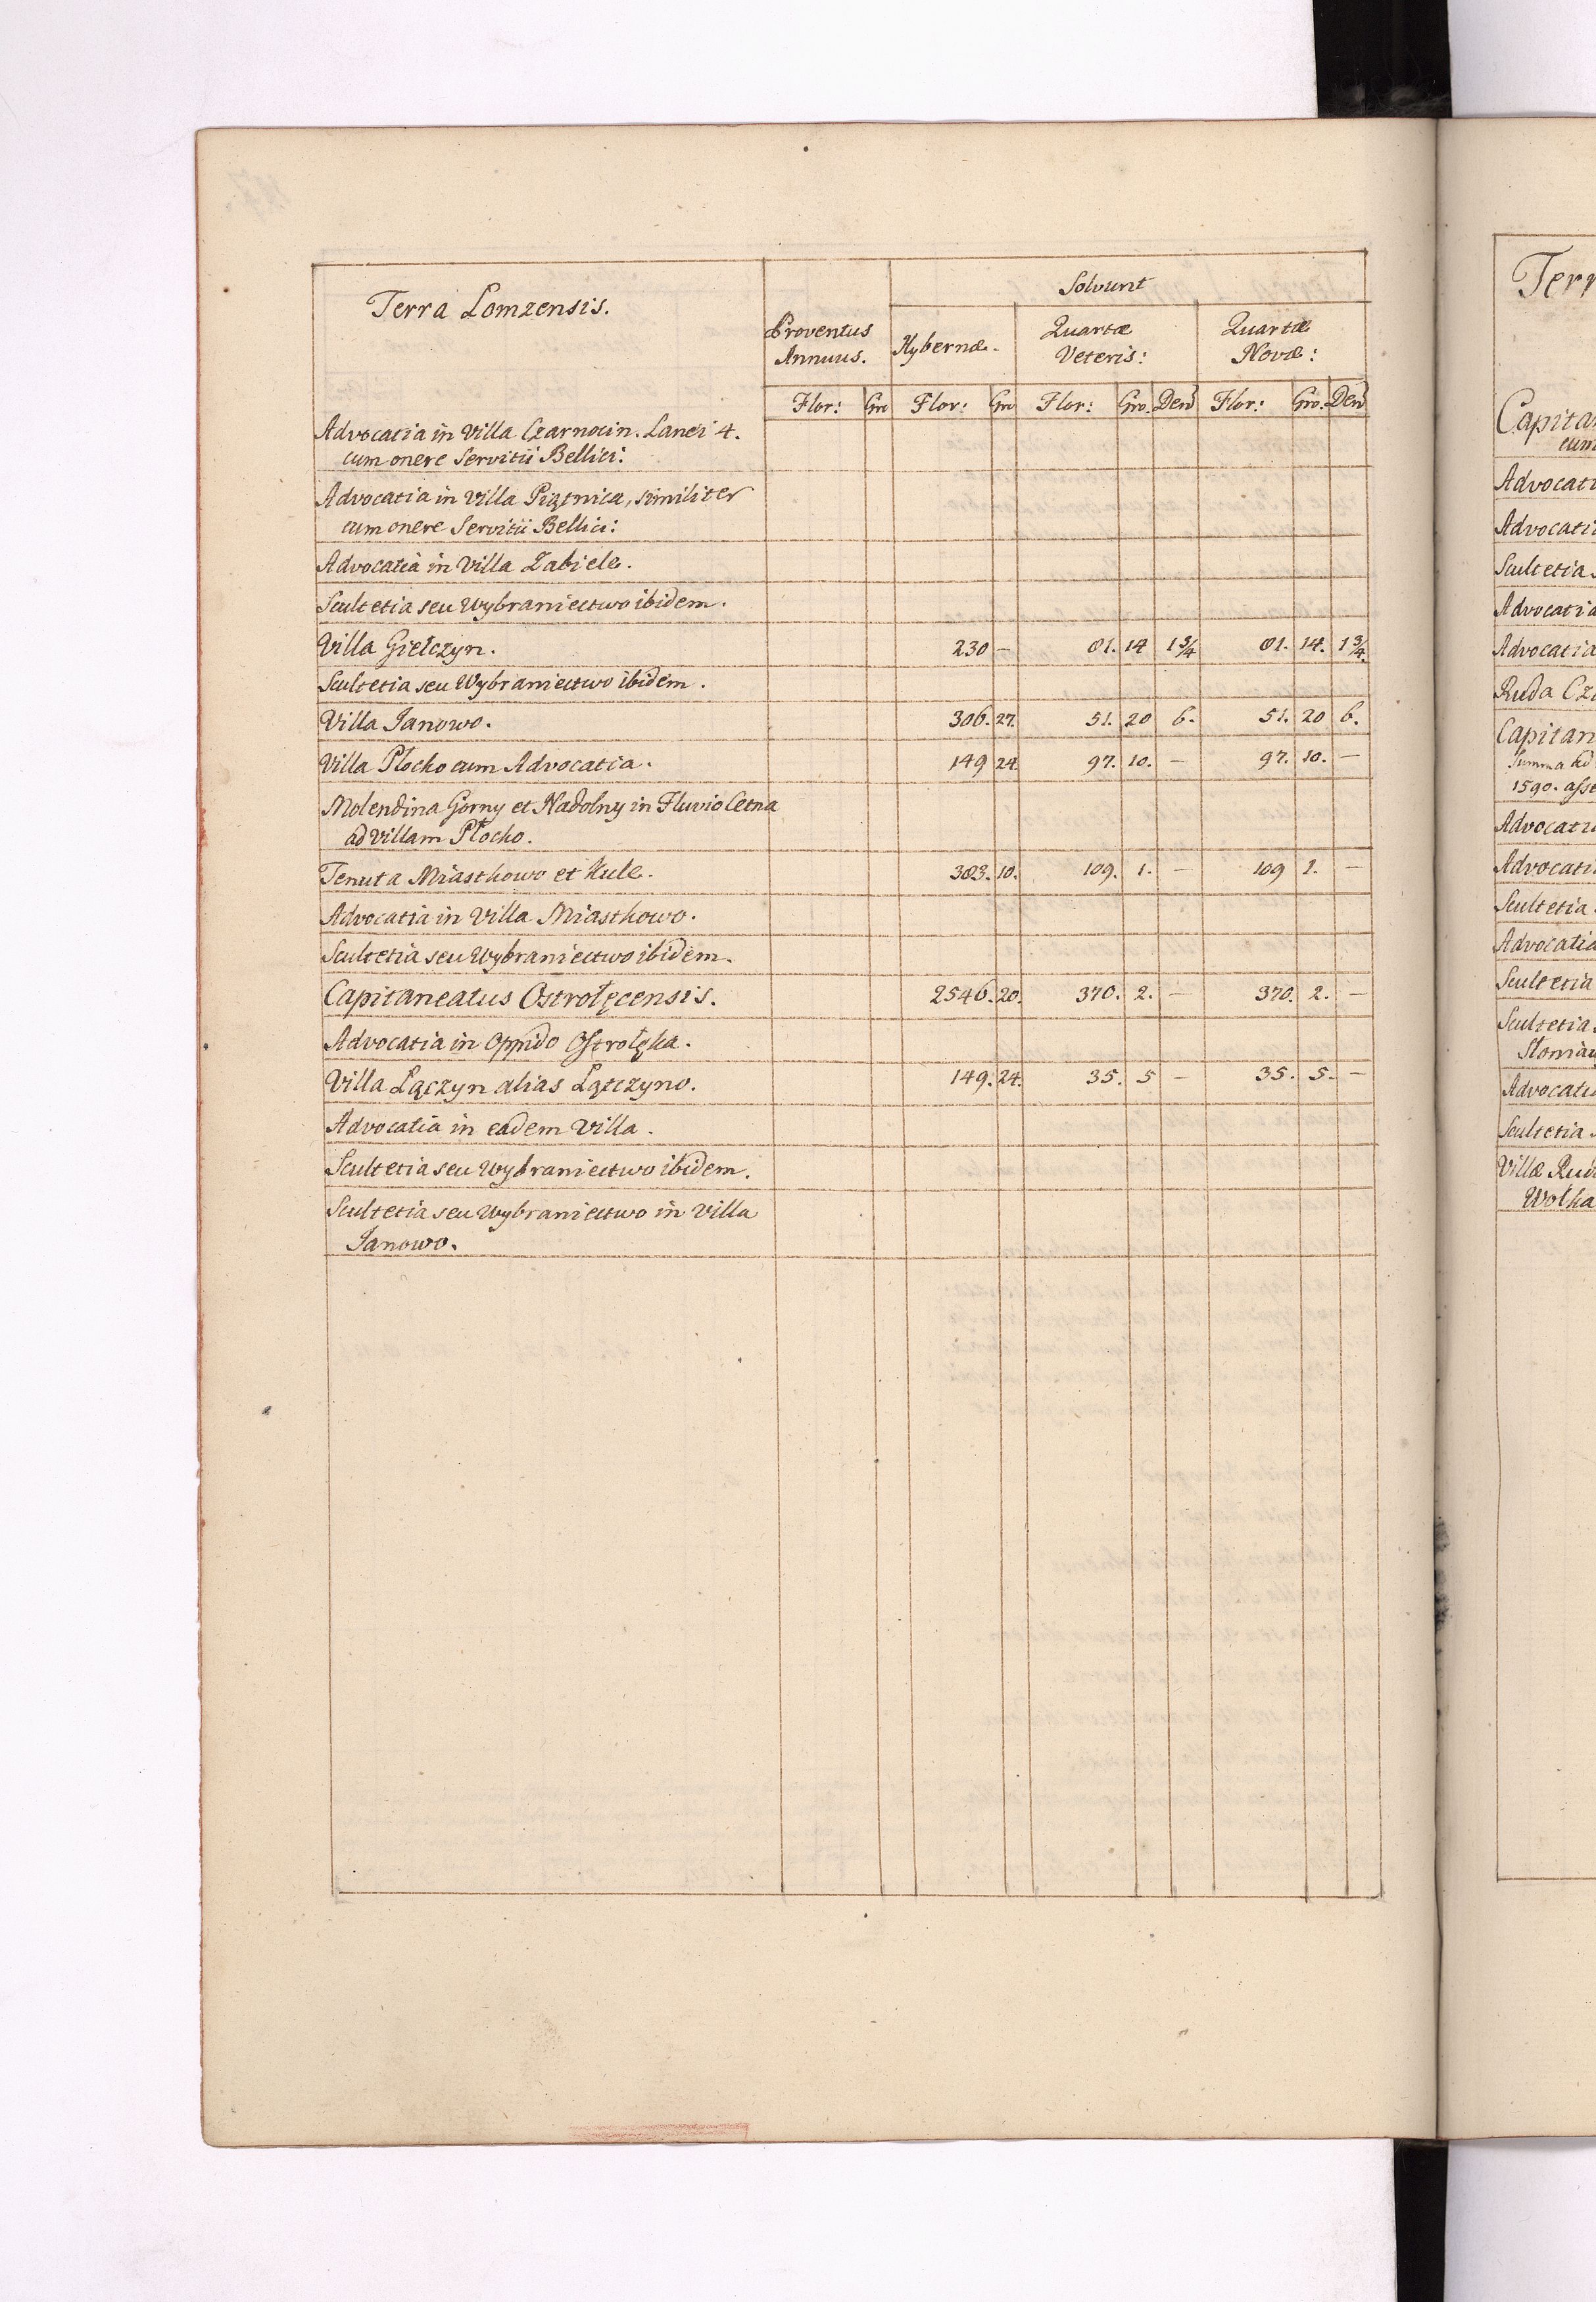 Terra Lomzensis.
Proventus Annuus.
Solvunt
Hybernæ.
Quartæ Veteris:
Quartæ Novæ:
Flor: Gro Flor: Gro Flor: Gro. Den Flor: Gro. Den
Advocatia in Villa Czarnocin. Lanei 4.
cum onere Servitii Bellici:
Advocatia in Villa Piątnica, similiter
cum onere Servitii Bellici:
Advocatia in Villa Zabiele.
Scultetia seu Wybraniectwo ibidem.
Villa Giełczyn. 230 – 81. 14 1 3/4 81. 14. 1 3/4.
Scultetia seu Wybraniectwo ibidem.
Villa Janowo. 306. 27. 51. 20 6. 51. 20 6.
Villa Płocko cum Advocatia. 149 24. 97. 10. – 97. 10. –
Molendina Gorny et Nadolny in Fluvio Cetna
ad Villam Płocko.
Tenuta Miastkowo et Kule. 383. 10. 109. 1. – 109 1. –
Advocatia in Villa Miastkowo.
Scultetia seu Wybraniectwo ibidem.
Capitaneatus Ostrołęcensis. 2546. 20. 370. 2. – 370. 2. –
Advocatia in Oppido Ostrołęka.
Villa Łączyn alias Łątczyno. 149. 24. 35. 5 – 35. 5. –
Advocatia in eadem Villa.
Scultetia seu Wybraniectwo ibidem.
Scultetia seu Wybraniectwo in Villa
Janowo.
Terr
Capitan
cum
Advocati
Advocati
Scultetia
Advocatia
Advocatia
Ruda Cz
Capitan
Summa
1590. asse
Advocati
Advocati
Scultetia
Advocatia
Scultetia
Scultetia
Advocati
Scultetia
Villæ Rud
Wolka